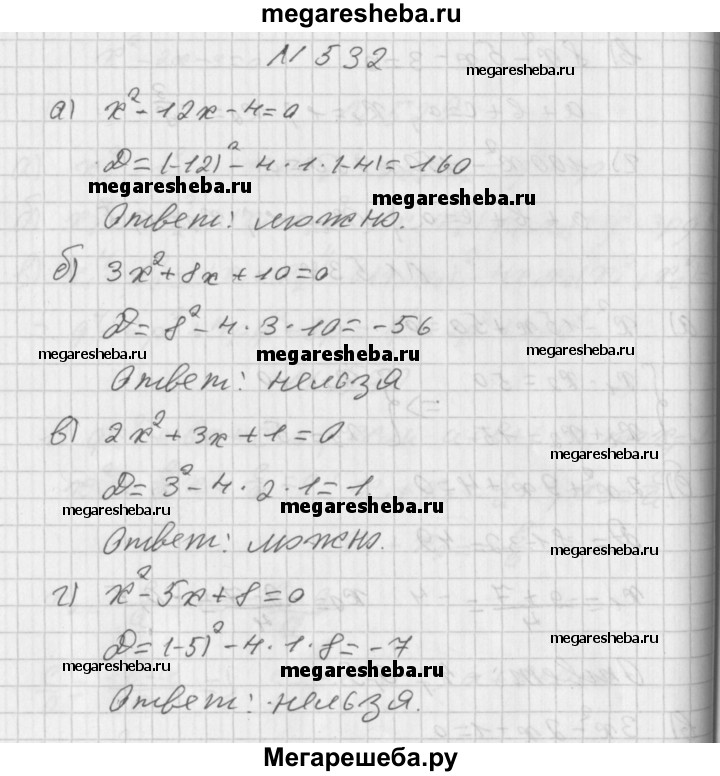 megaresheba.ru
N 532
megaresheba.ru
а) x² - 12x - 4 = 0
D = (-12)² - 4 · 1 · (-4) = 160
megaresheba.ru
megaresheba.ru
Ответ: можно.
б) 3x² + 8x + 10 = 0
D = 8² - 4 · 3 · 10 = -56
megaresheba.ru megaresheba.ru megaresheba.ru
Ответ: нельзя
в) 2x² + 3x + 1 = 0
D = 3² - 4 · 2 · 1 = 1
megaresheba.ru megaresheba.ru megaresheba.ru
Ответ: можно.
megaresheba.ru
г) x² - 5x + 8 = 0
D = (-5)² - 4 · 1 · 8 = -7
megaresheba.ru megaresheba.ru megaresheba.ru
Ответ: нельзя.
Мегарешеба.ру